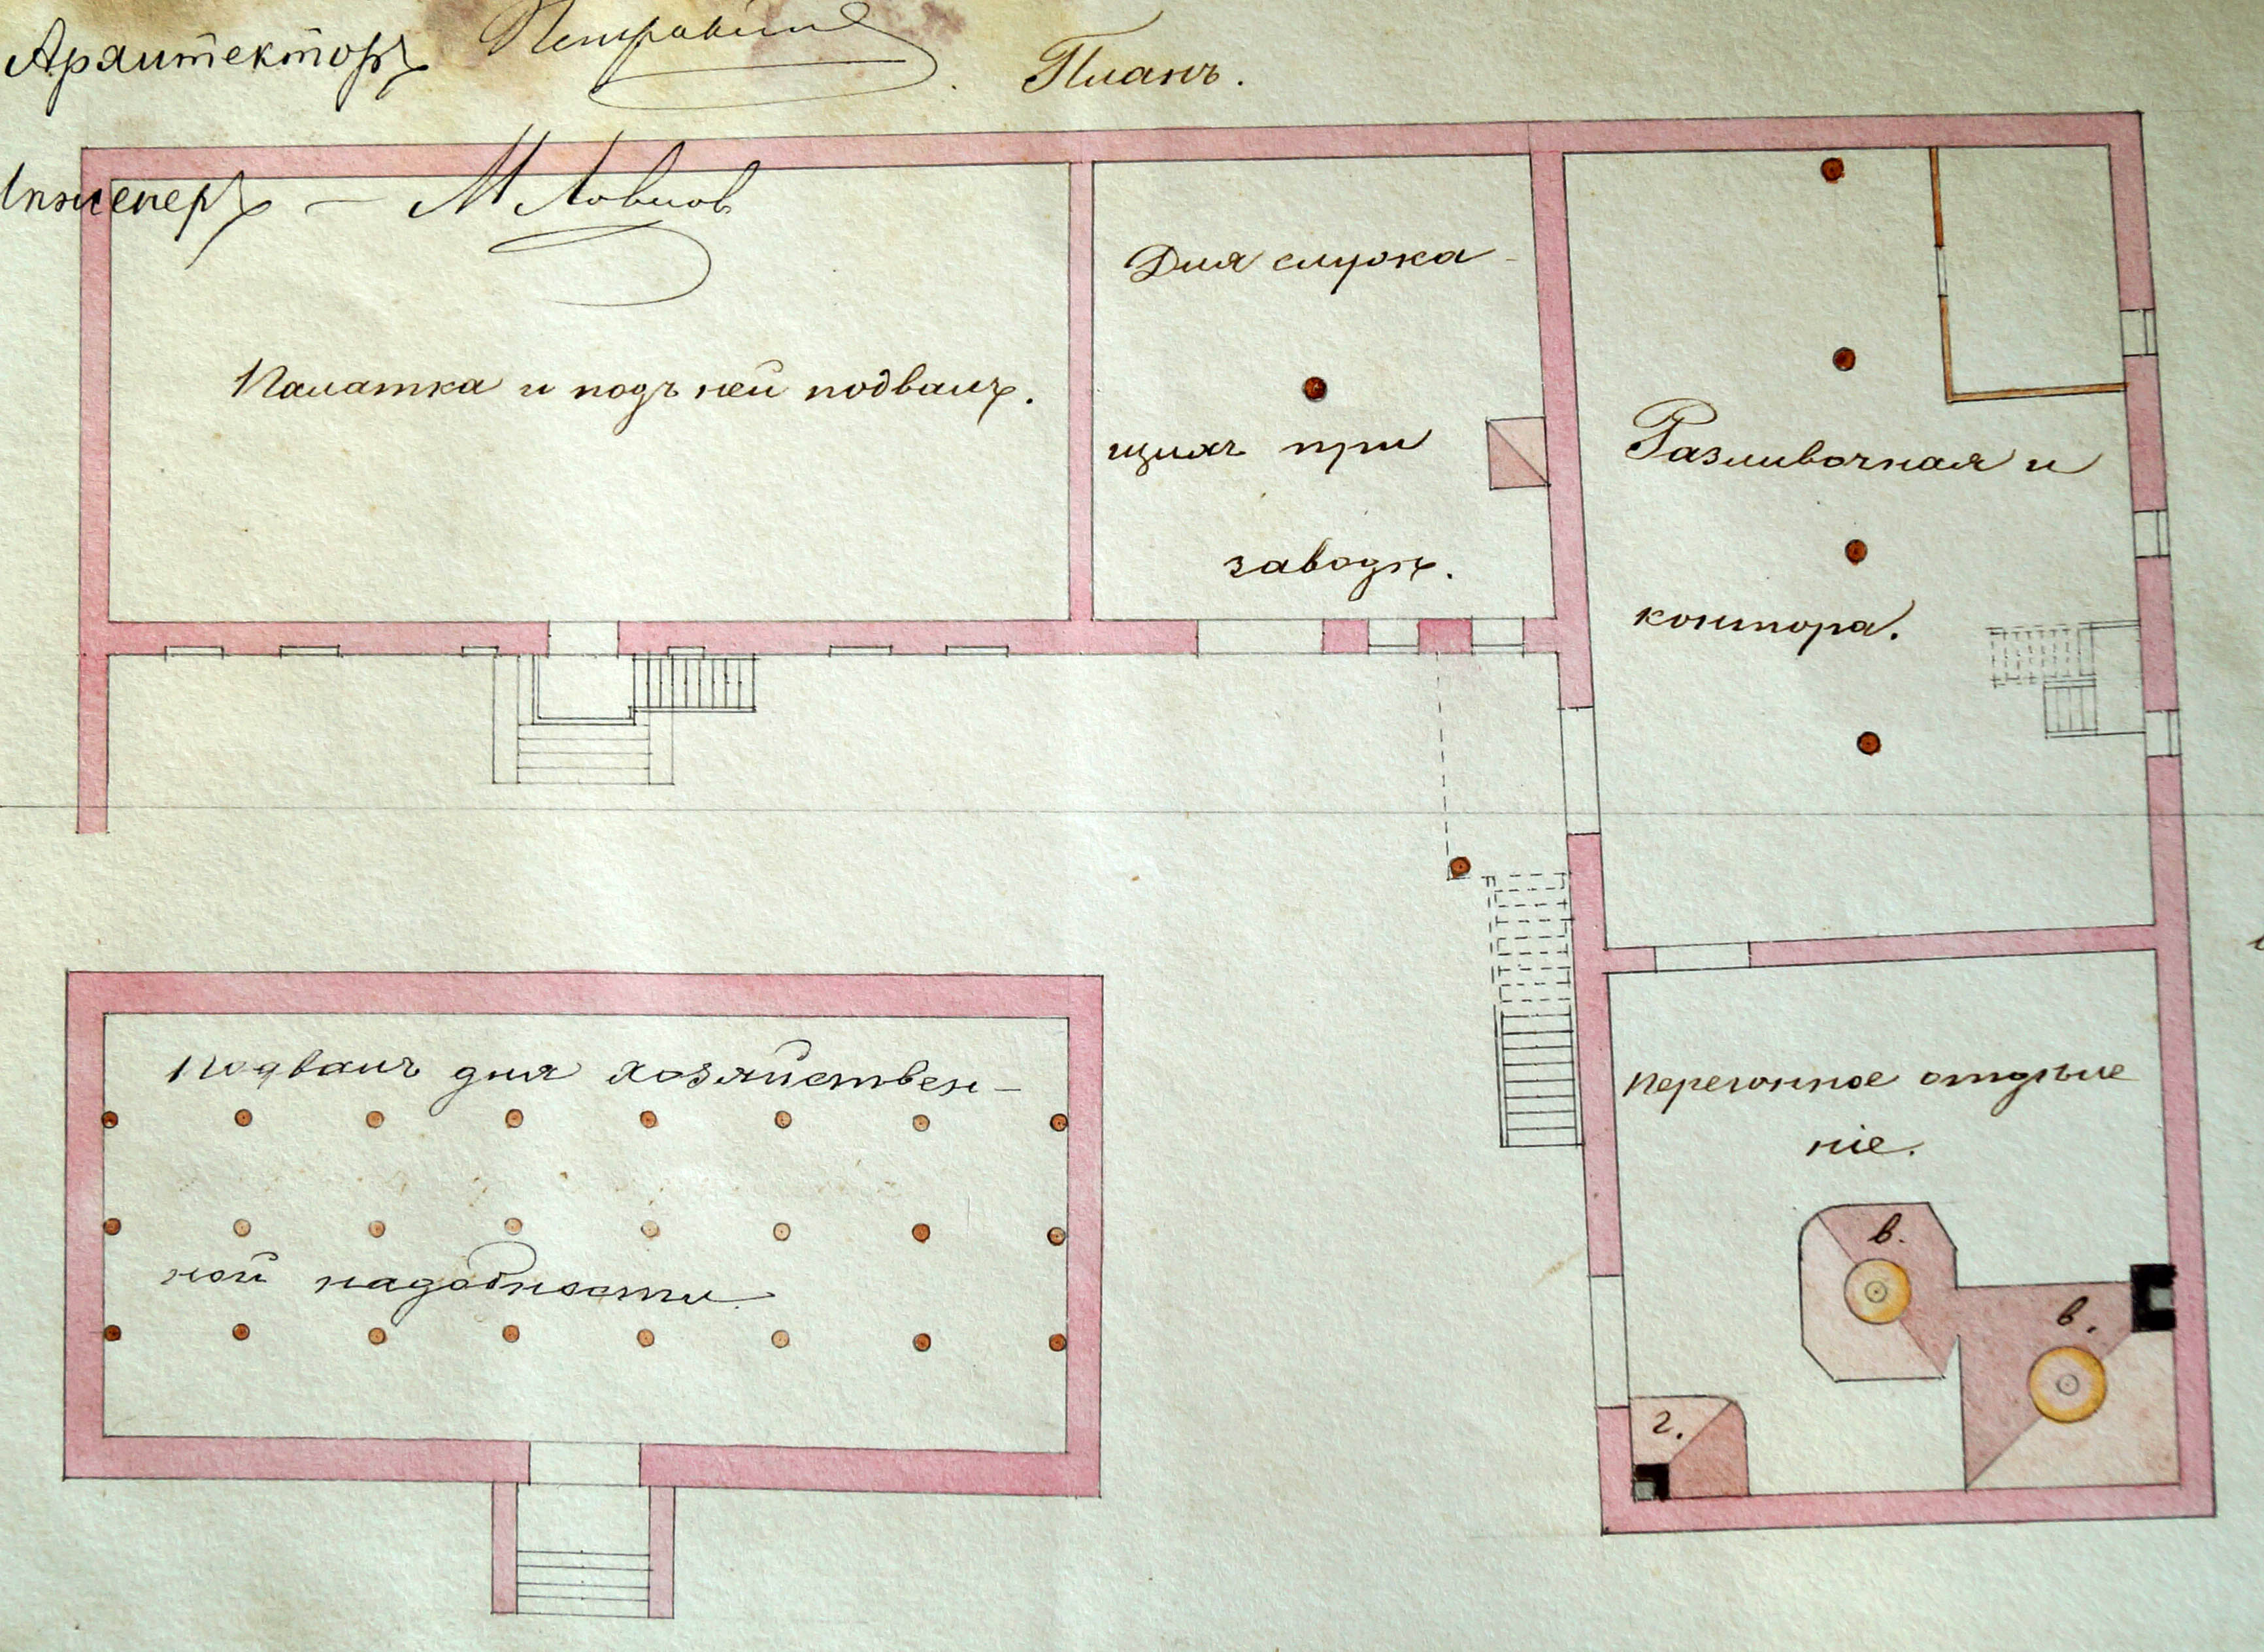 Архитекторъ
Планъ.
Инженеръ — М Ловцов
Палатка и подъ ней подвалъ.
Для служа-
щихъ при
заводѣ.
Разливочная и
контора.
Подвалъ для хозяйствен-
ной надобности.
Перегонное отдѣле
ніе.
в.
в.
г.